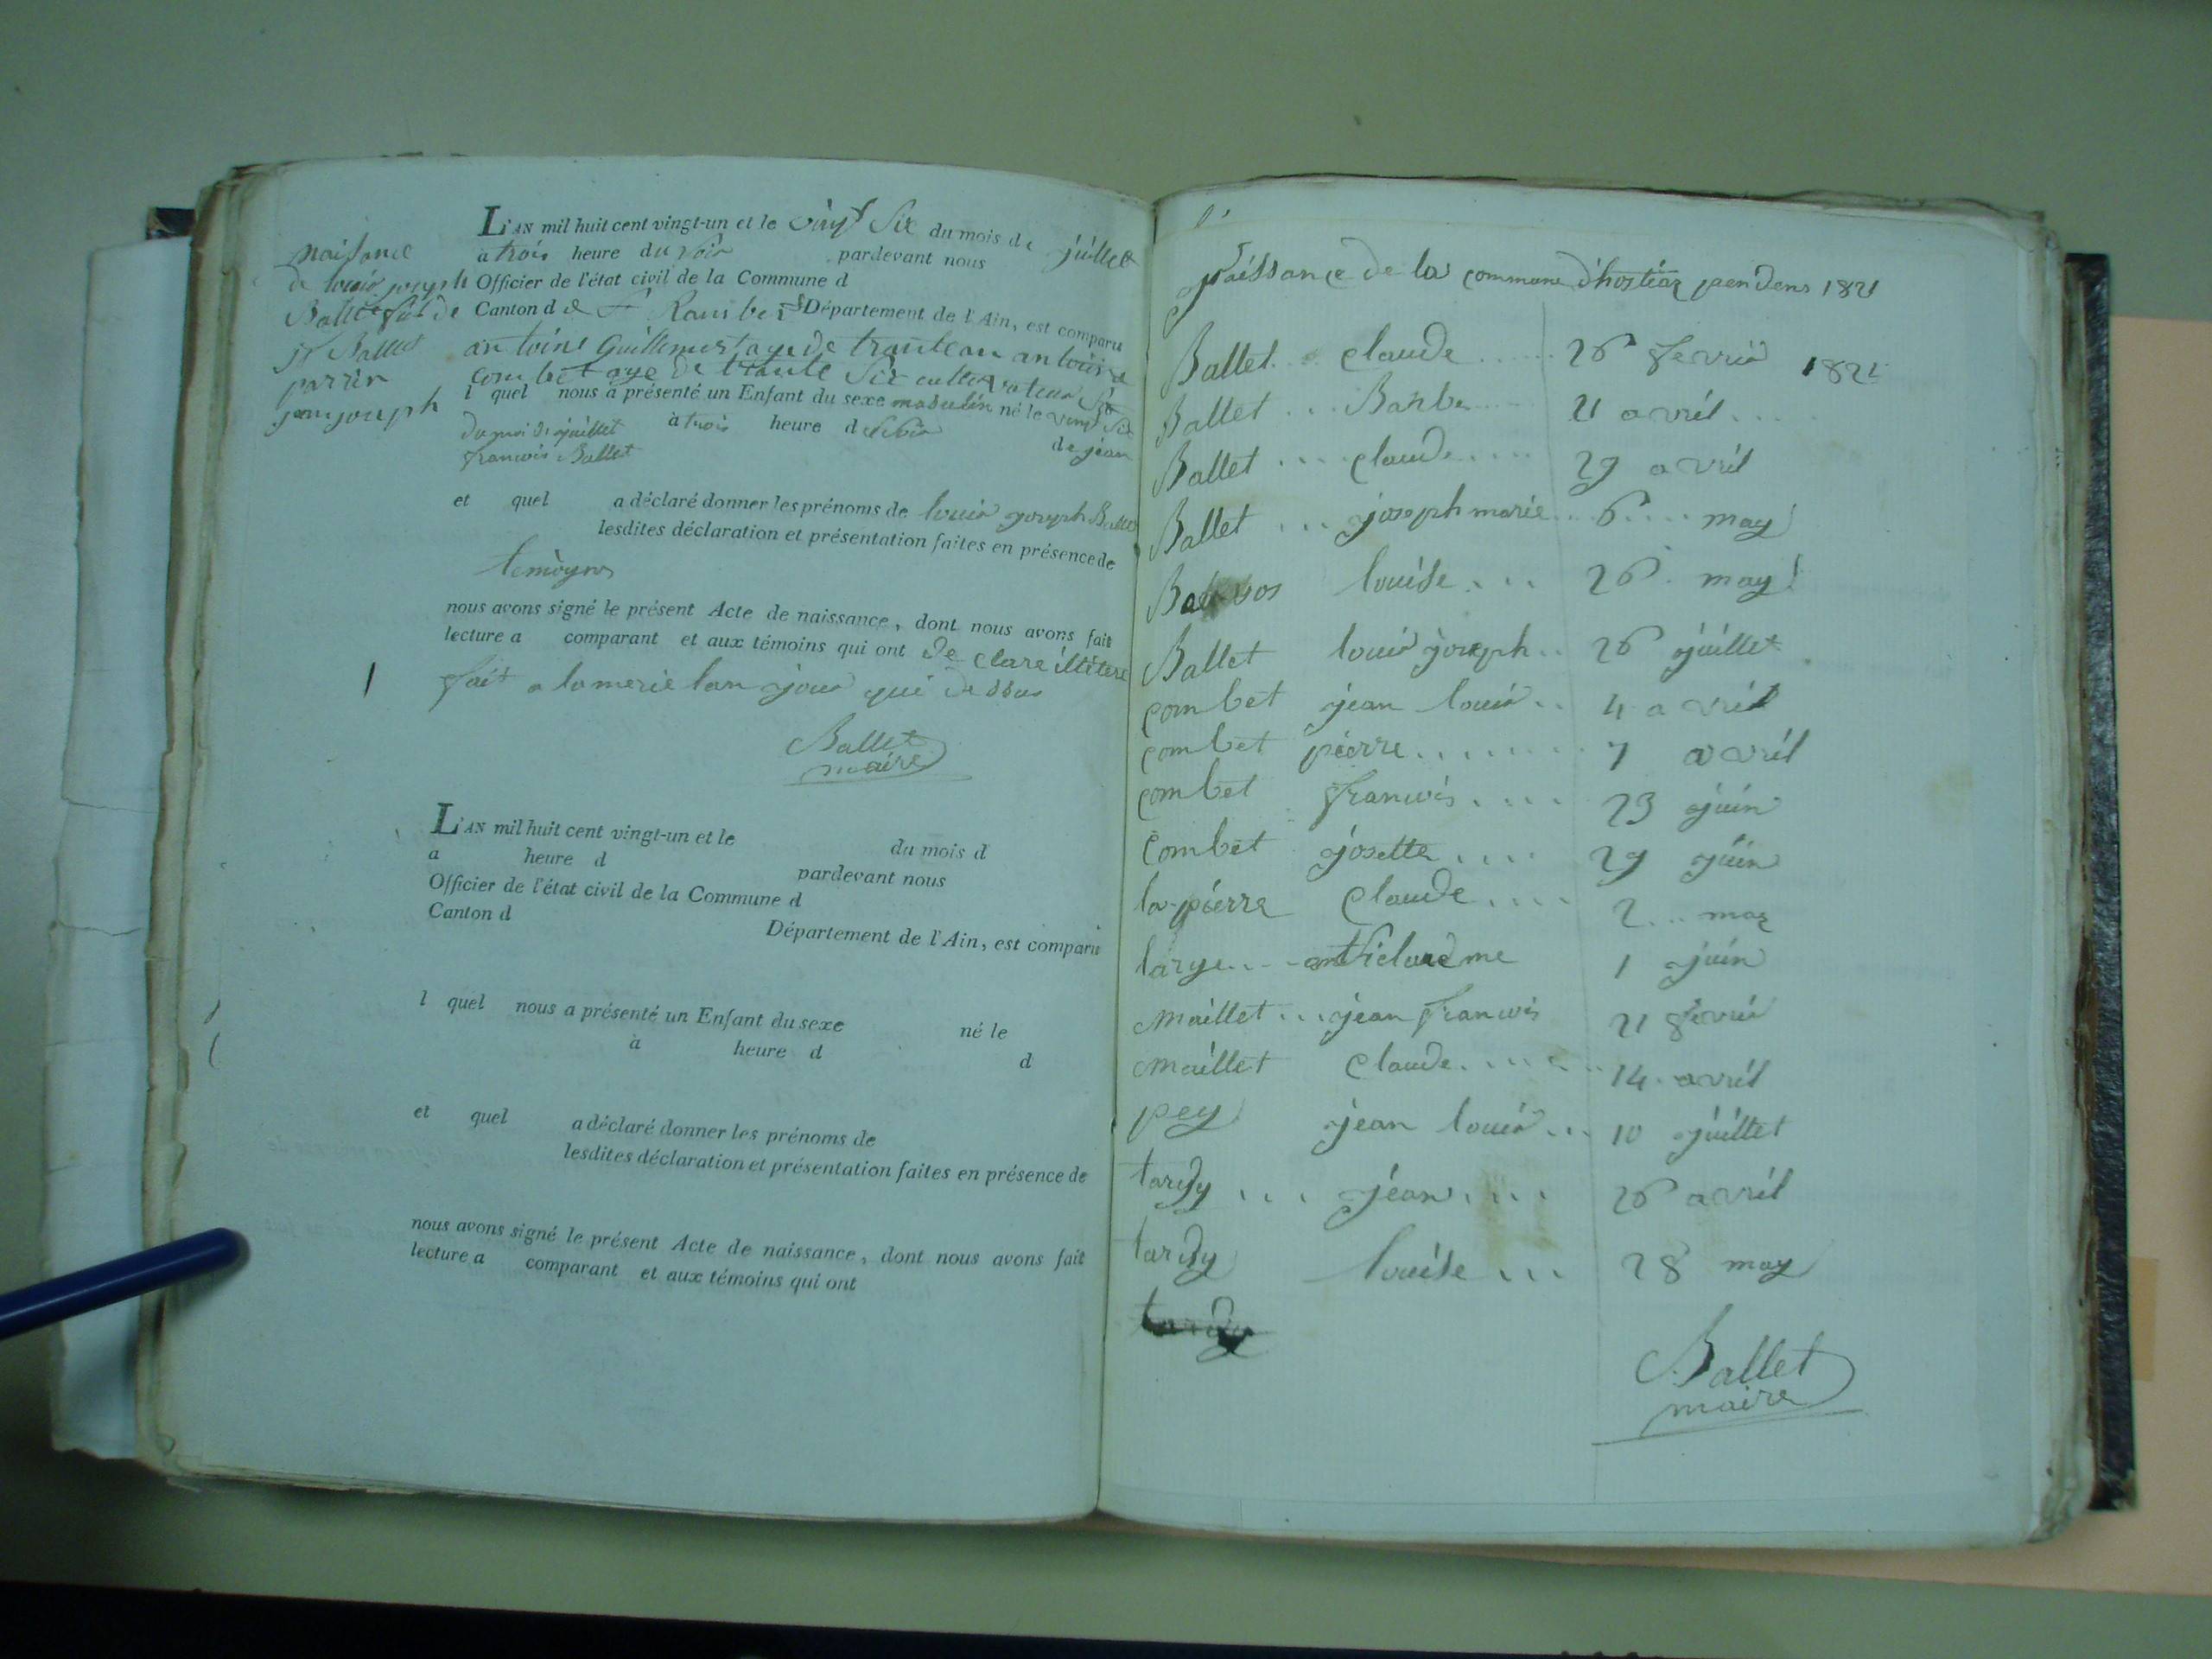 naissance
de louis joseph
Ballet fils de
Ballet
parrin
jean joseph
L'AN mil huit cent vingt-un et le vingt six du mois de juillet
a trois heure du soir pardevant nous
Officier de l'état civil de la Commune d
Canton d e St Rambert Département de l'Ain, est comparu
antoine Guillermet age de trante an antoine
combet age de trante six cultivateur
l quel nous a présenté un Enfant du sexe masculin né le vingt six
du moi de juillet à trois heure d soir de jean
francois Ballet
et quel a déclaré donner les prénoms de louis joseph Ballet
lesdites déclaration et présentation faites en présence de
temoyns
nous avons signé le présent Acte de naissance, dont nous avons fait
lecture a comparant et aux témoins qui ont de clare illitere
fait a la merie lan jour que de ssus
Ballet
maire
L'AN mil huit cent vingt-un et le du mois d
a heure d pardevant nous
Officier de l'état civil de la Commune d
Canton d Département de l'Ain, est comparu
l quel nous a présenté un Enfant du sexe né le
à heure d d
et quel a déclaré donner les prénoms de
lesdites déclaration et présentation faites en présence de
nous avons signé le présent Acte de naissance, dont nous avons fait
lecture a comparant et aux témoins qui ont
Naissance de la commune d'hostiaz pendens 1821
Ballet claude 26 fevrié 1821
Ballet ... Barbe 21 avril
Ballet ... claude 29 avril
Ballet ... joseph marie 6 may
louise ... 26 may
Ballet louis joseph .. 26 juillet
combet jean louis .. 4 avril
combet pierre ....... 7 avril
combet francois .... 23 juin
combet josette .... 29 juin
la pierre claude .... 2 ... mas
large 1 juin
maillet ... jean francois 21 fevrié
maillet claude ...... 14 avril
pey jean louis ... 10 juillet
tardy ... jean .... 26 avril
tardy louise ... 28 may
tardy
Ballet
maire